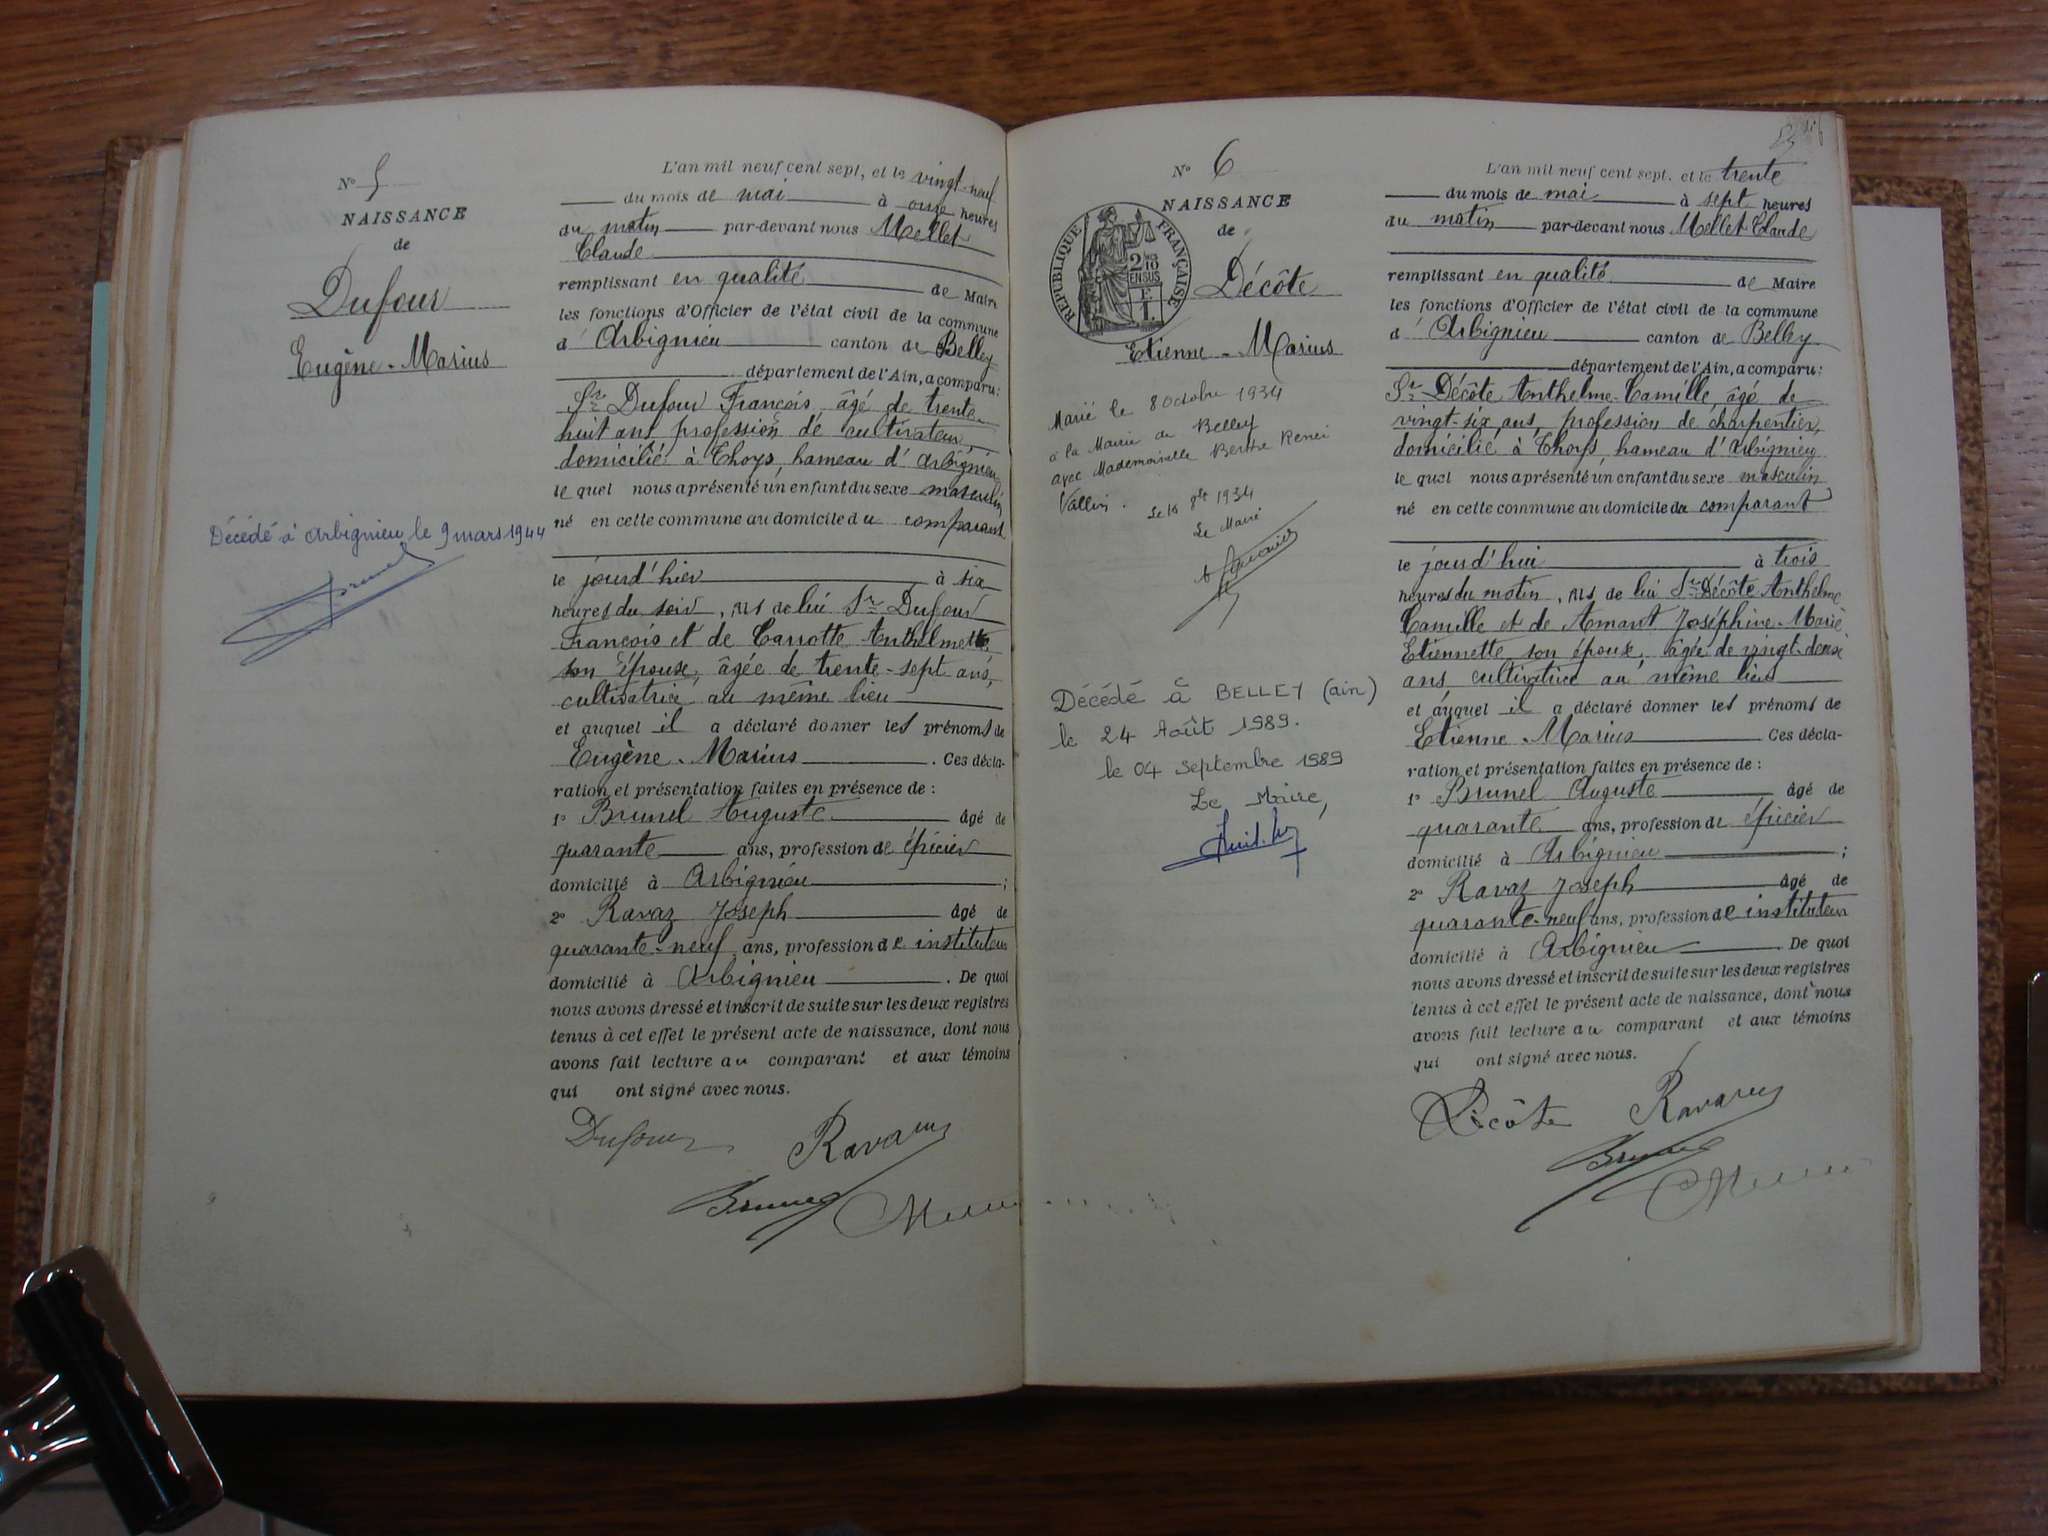 N° 5
NAISSANCE
de
Dufour
Eugène-Marius
Décédé à Arbignieu le 9 mars 1944
Brunel
L'an mil neuf cent sept, et le vingt-neuf
du mois de mai à onze heures
du matin par-devant nous Mellet
Claude
remplissant en qualité de Maire
les fonctions d'Officier de l'état civil de la commune
d' Arbignieu canton de Belley
département de l'Ain, a comparu:
Sr Dufour François, âgé de trente-
huit ans, profession de cultivateur,
domicilié à Thoys, hameau d'Arbignieu
lequel nous a présenté un enfant du sexe masculin
né en cette commune au domicile du comparant
le jourd'hier à six
heures du soir, fils de lui Sr Dufour
François et de Carrotte Anthelmette
son épouse, âgée de trente-sept ans,
cultivatrice au même lieu
et auquel il a déclaré donner les prénoms de
Eugène-Marius. Ces décla-
ration et présentation faites en présence de :
1° Brunel Auguste âgé de
quarante ans, profession de épicier
domicilié à Arbignieu ;
2° Ravaz Joseph âgé de
quarante-neuf ans, profession de instituteur
domicilié à Arbignieu. De quoi
nous avons dressé et inscrit de suite sur les deux registres
tenus à cet effet le présent acte de naissance, dont nous
avons fait lecture au comparant et aux témoins
qui ont signé avec nous.
Dufour Ravaz
Brunel
N° 6
NAISSANCE
de
RÉPUBLIQUE FRANÇAISE
2/10 EN SUS
Décôte
Etienne-Marius
Marié le 8 Octobre 1934
à la Mairie de Belley
avec Mademoiselle Berthe Renée
Vallin.
Le Maire
Décédé à BELLEY (ain)
le 24 Août 1989.
le 04 Septembre 1989
Le Maire,
L'an mil neuf cent sept, et le trente
du mois de mai à sept heures
du matin par-devant nous Mellet Claude
remplissant en qualité de Maire
les fonctions d'Officier de l'état civil de la commune
d' Arbignieu canton de Belley
département de l'Ain, a comparu:
Sr Décôte Anthelme-Camille, âgé de
vingt-six ans, profession de charpentier,
domicilié à Thoys, hameau d'Arbignieu
lequel nous a présenté un enfant du sexe masculin
né en cette commune au domicile du comparant
le jourd'hui à trois
heures du matin, fils de lui Sr Décôte Anthelme
Camille et de Amant Joséphine-Marie-
Etiennette son épouse, âgée de vingt-deux
ans cultivatrice au même lieu
et auquel il a déclaré donner les prénoms de
Etienne-Marius Ces décla-
ration et présentation faites en présence de :
1° Brunel Auguste âgé de
quarante ans, profession de épicier
domicilié à Arbignieu ;
2° Ravaz Joseph âgé de
quarante-neuf ans, profession de instituteur
domicilié à Arbignieu. De quoi
nous avons dressé et inscrit de suite sur les deux registres
tenus à cet effet le présent acte de naissance, dont nous
avons fait lecture au comparant et aux témoins
qui ont signé avec nous.
Décôte Ravaz
Brunel